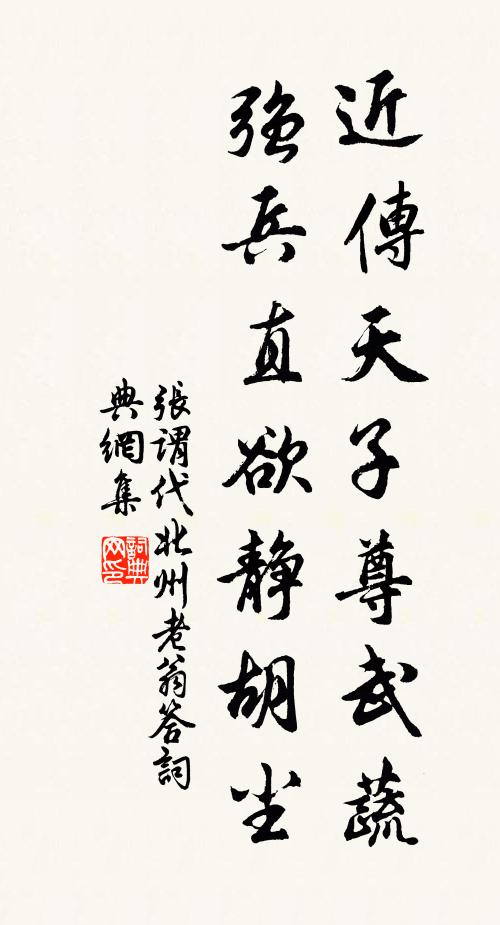 近傳天子尊武蔬
強兵直欲静胡尘
張謂代北州老翁答詞
典網集
詞典
网印